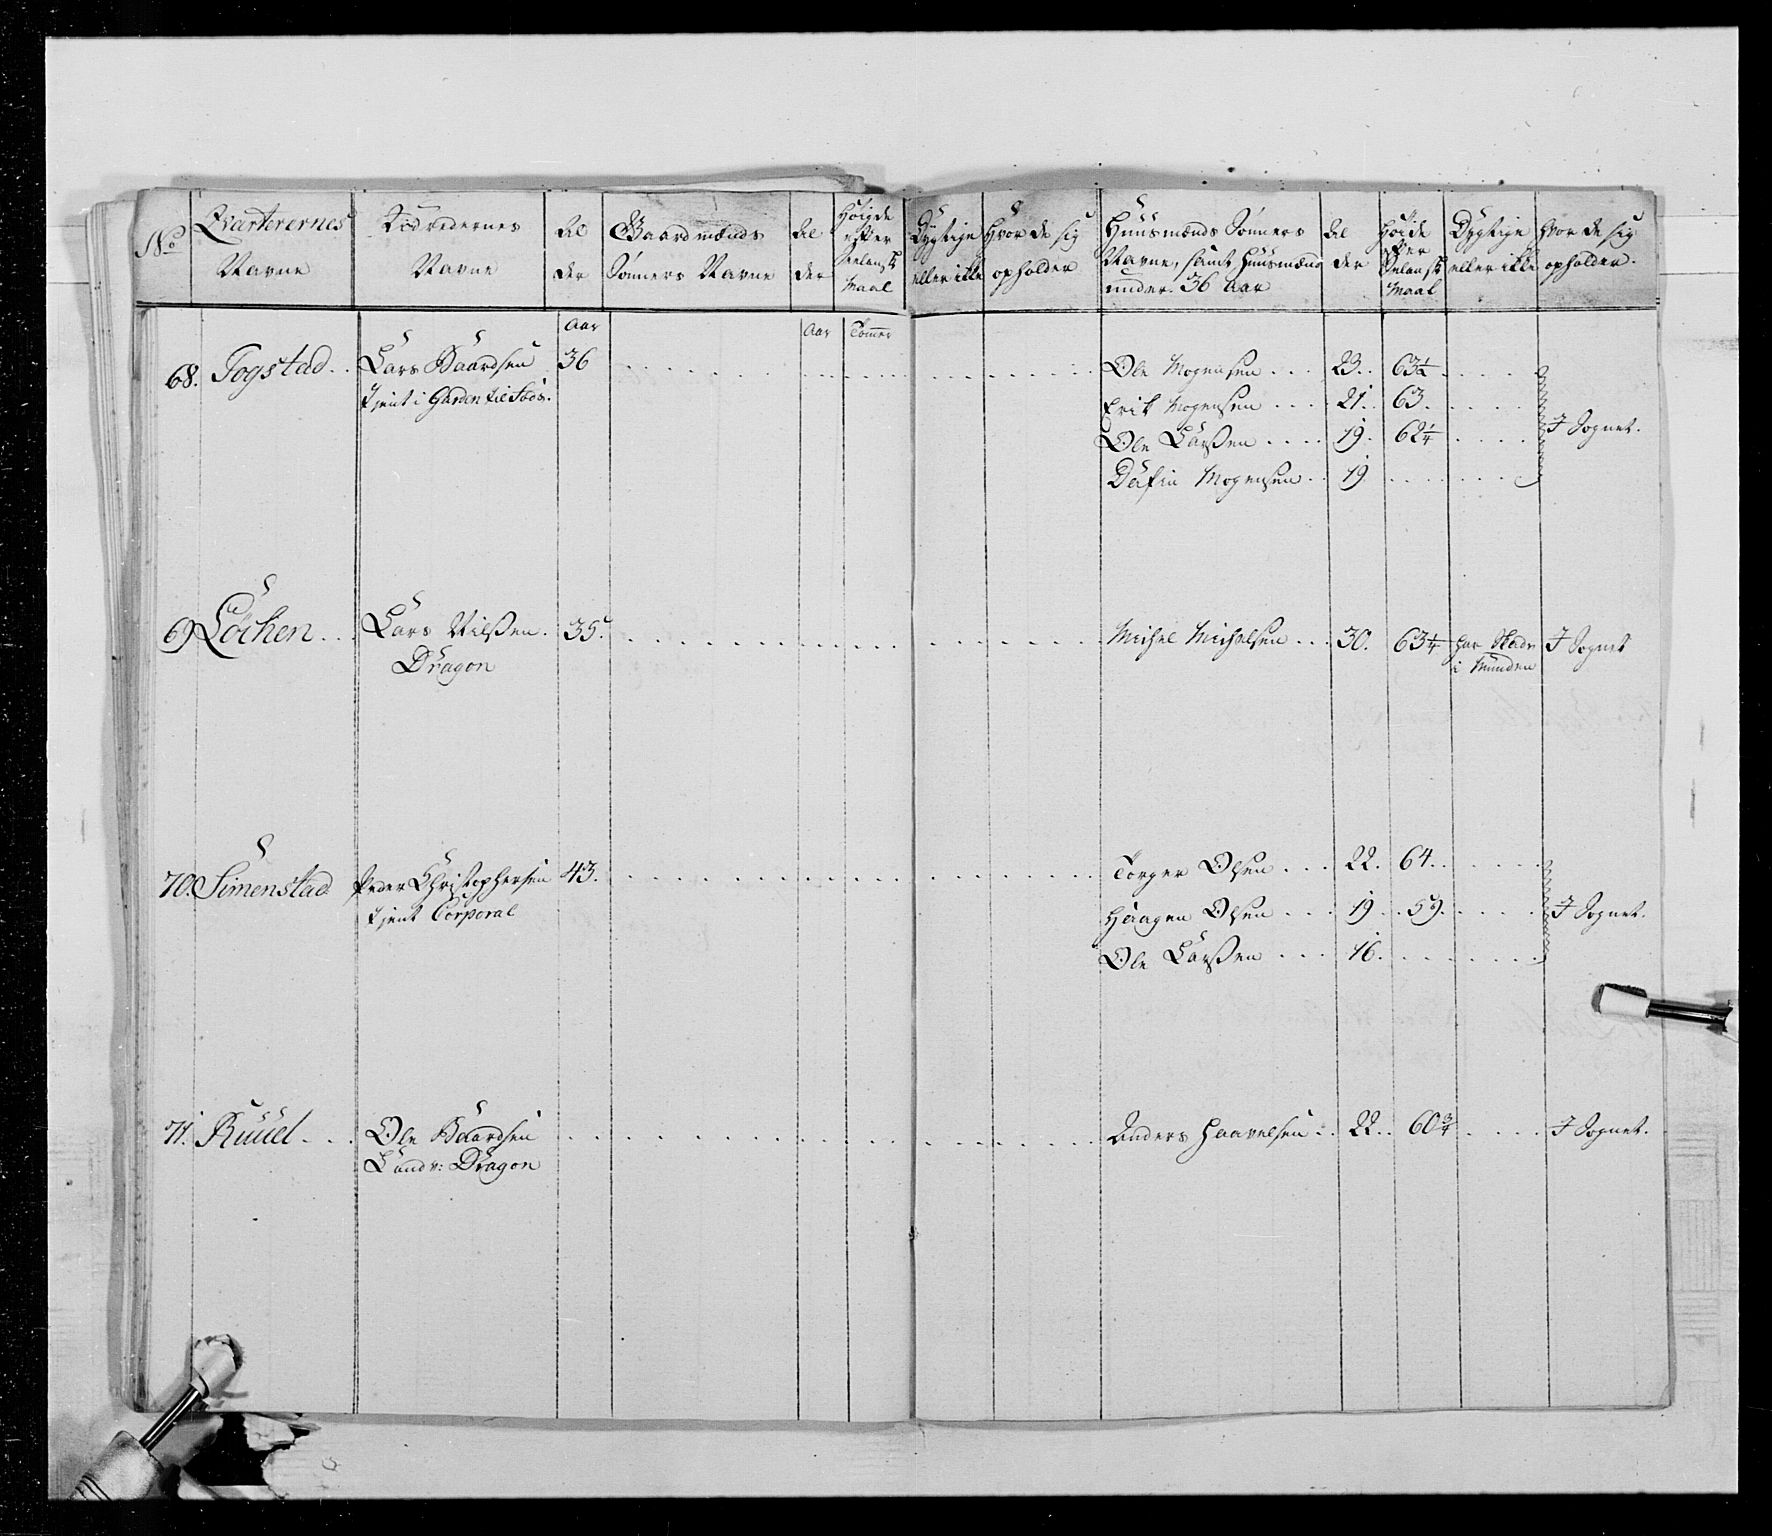 No
Qvarterernes
Navne
Beboernes
Navne
Al
der
Gaardmænds
Sönners Navne
Al
der
Höide
efter
Sielansk
Maal
Dygtige
eller ikke
Hvor de sig
opholder
Huusmænds Sönners
Navne, samt Huusmænd
under 36 Aar
Al
der
Höide
efter
Sielansk
Maal
Dygtige
eller ikke
Hvor de sig
opholder.
Aar
Aar
Tomer
68. Togstad Lars Baardsen 36
tient i Garden til Fods.
Ole Mogensen 23. 63½
Erik Mogensen 21. 63.
Ole Larssen 19. 62¼
I Sognet.
Dafin Mogensen 19
69 Löchen Lars Nilssen. 35.
Dragon
Michel Michelsen 30. 63¼ har Skade
i Munden
I Sognet
70. Simenstad Peder Christophersen 43.
tient Corporal
Torger Olsen 22. 64.
Haagen Olsen 19 59.
I Sognet.
Ole Larssen 16.
71. Ruuel Ole Baardsen
Landv: Dragon
Anders Haavelsen 22. 60¾ I Sognet.